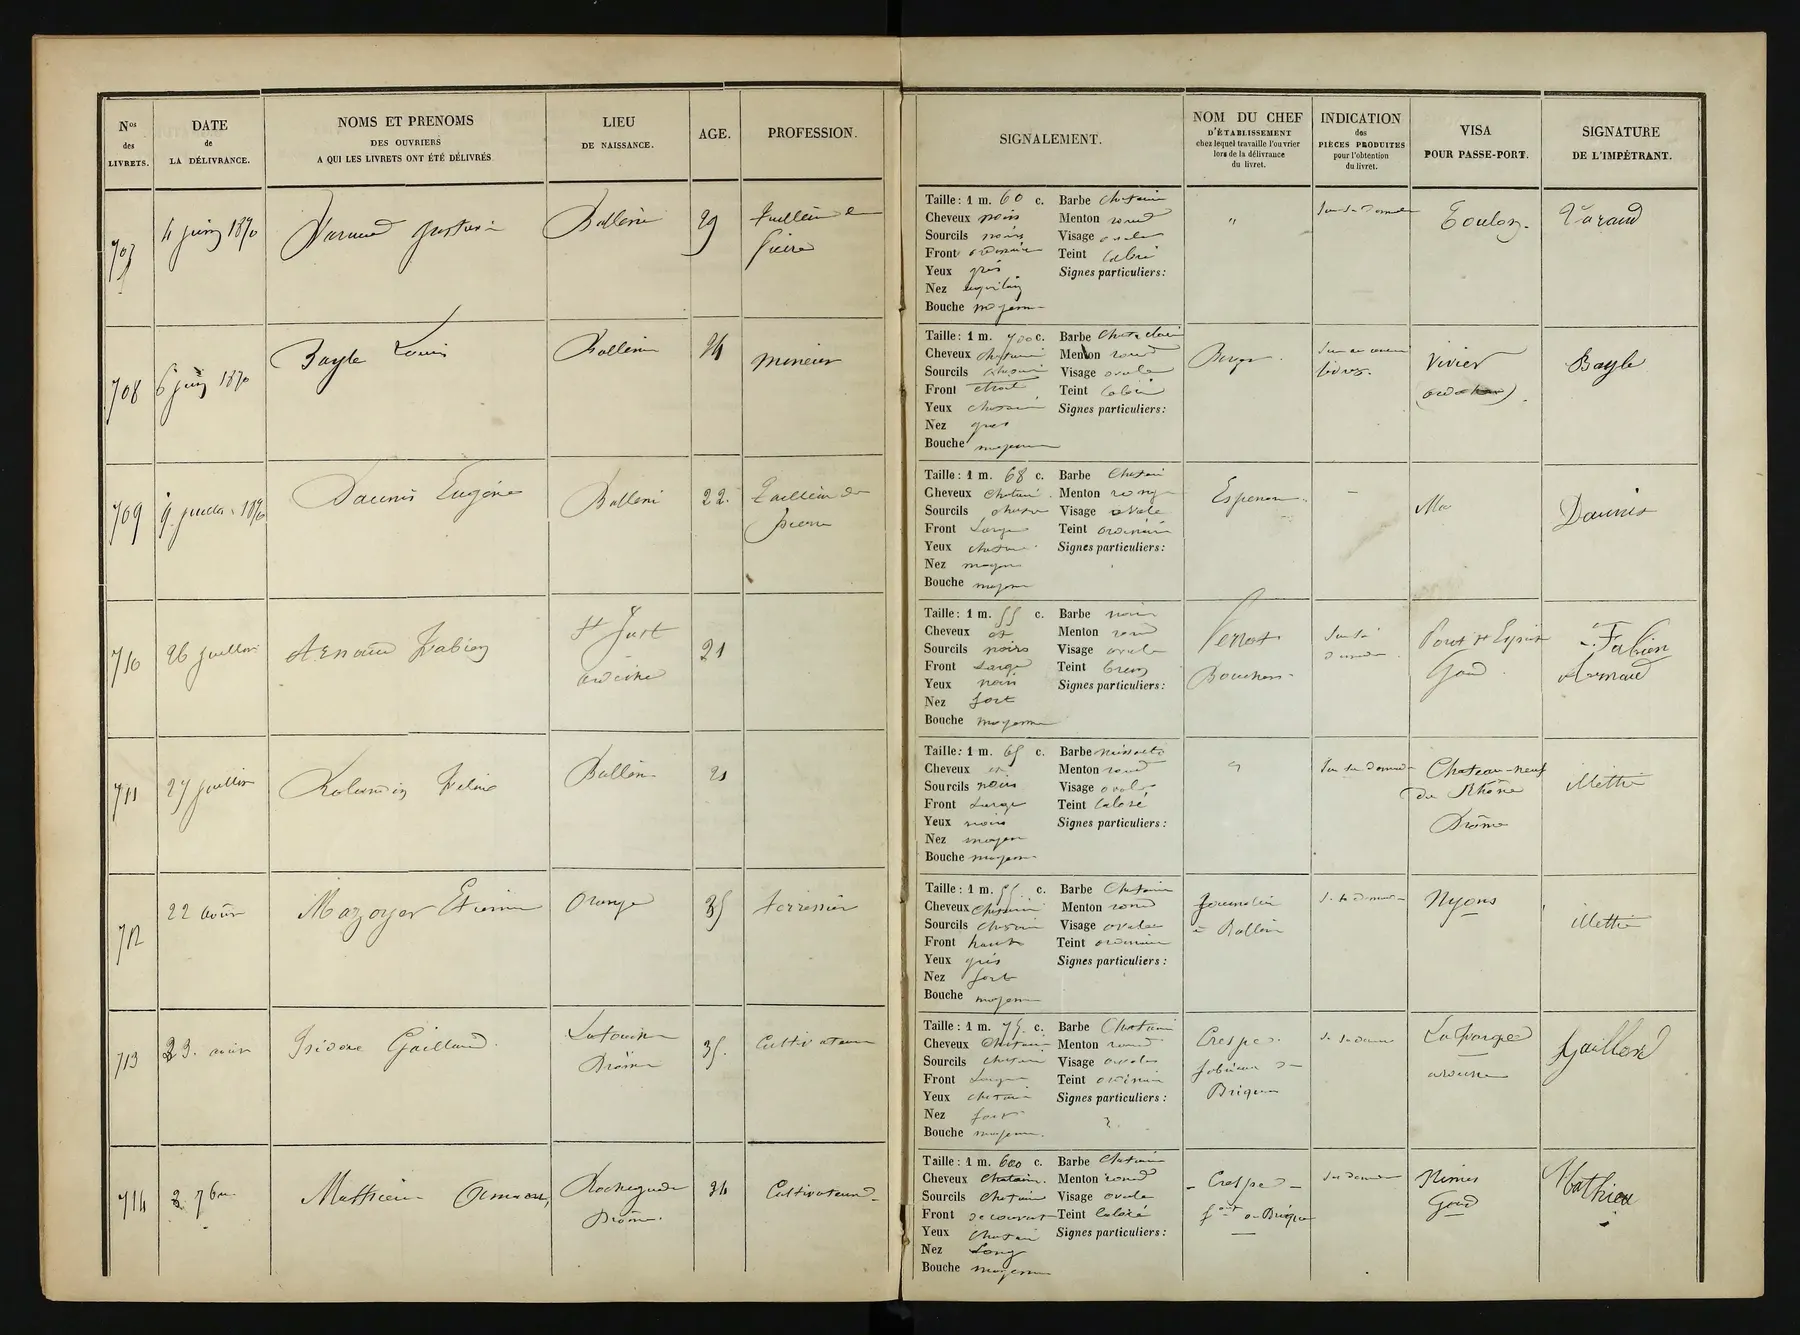 Nos
des
LIVRETS.
DATE
de
LA DÉLIVRANCE.
NOMS ET PRENOMS
DES OUVRIERS
A QUI LES LIVRETS ONT ÉTÉ DÉLIVRÉS
LIEU
DE NAISSANCE.
AGE.
PROFESSION.
SIGNALEMENT.
NOM DU CHEF
D'ÉTABLISSEMENT
chez lequel travaille l'ouvrier
lors de la délivrance
du livret.
INDICATION
des
PIÈCES PRODUITES
pour l'obtention
du livret.
VISA
POUR PASSE-PORT.
SIGNATURE
DE L'IMPÉTRANT.
4 juin 1870
29
Taille : 1 m. 60 c. Barbe Chatain
Cheveux noirs Menton rond
Sourcils noirs Visage ovale
Front ordinaire Teint Coloré
Yeux gris Signes particuliers :
Nez aquilin
Bouche moyenne
"
Toulon.
708
6 juin 1870
Bayle Louis
Bollène
24
mineur
Taille : 1 m. 700 c. Barbe Chat clair
Cheveux chatain Menton rond
Sourcils chatain Visage ovale
Front étroit Teint Coloré
Yeux chatain Signes particuliers :
Nez gros
Bouche moyenne
Vivier
Bayle
709
Daunis Eugène
Bollène
22.
Tailleur de
pierre
Taille : 1 m. 68 c. Barbe Chatain
Cheveux chatain Menton rond
Sourcils chatain Visage ovale
Front Large Teint ordinaire
Yeux chatain Signes particuliers :
Nez moyen
Bouche moyenne
Daunis
710
26 juillet
Arnaud Fabien
St Just
ardèche
21
Taille : 1 m. 55 c. Barbe noire
Cheveux et Menton rond
Sourcils noirs Visage ovale
Front Large Teint brun
Yeux noirs Signes particuliers :
Nez fort
Bouche moyenne
Pont St Esprit
Gard
Fabien
Arnaud
711
27 juillet
Bollène
21
Taille : 1 m. 65 c. Barbe naissante
Cheveux et Menton rond
Sourcils noirs Visage ovale
Front Large Teint Coloré
Yeux noirs Signes particuliers :
Nez moyen
Bouche moyenne
Sur sa demande
Chateau-neuf
du Rhône
Drôme
illettré
712
22 août
Mazoyer Etienne
Orange
35
terrassier
Taille : 1 m. 55 c. Barbe Chatain
Cheveux Chatain Menton rond
Sourcils Chatain Visage ovale
Front haut Teint ordinaire
Yeux gris Signes particuliers :
Nez fort
Bouche moyenne
à Bollène
Nyons
illettré
713
23. août
Isidore Gaillard.
Drôme
35.
Cultivateur
Taille : 1 m. 75. c. Barbe Chatain
Cheveux Chatain Menton rond
Sourcils chatain Visage ovale
Front Large Teint ordinaire
Yeux chatain Signes particuliers :
Nez fort
Bouche moyenne.
Crespe
fabricant de
Briques
Laforge
ardèche
Gaillard
714
3 7bre
Mathieu
Rochegude
Drôme.
34
Cultivateur.
Taille : 1 m. 600 c. Barbe Chatain
Cheveux Chatain. Menton rond
Sourcils Chatain Visage ovale
Front découvert Teint Coloré
Yeux Chatain Signes particuliers :
Nez Long
Bouche moyenne
- Crespe -
fant de Briques
Nimes
Gard
Mathieu